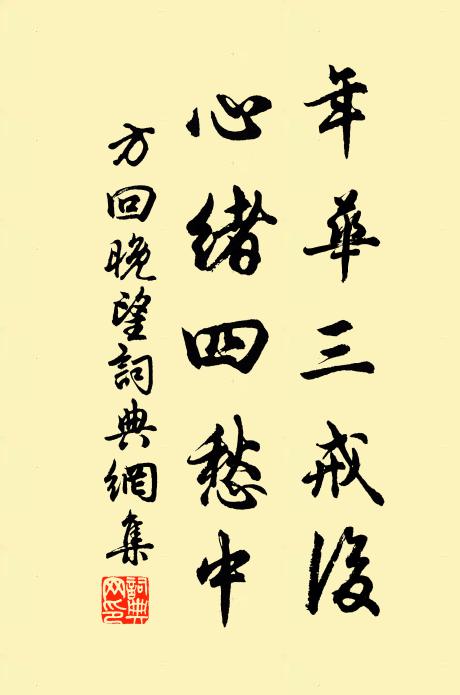 年華三戒後
心緒四愁中
方回晚望詞典網集
詞典網印